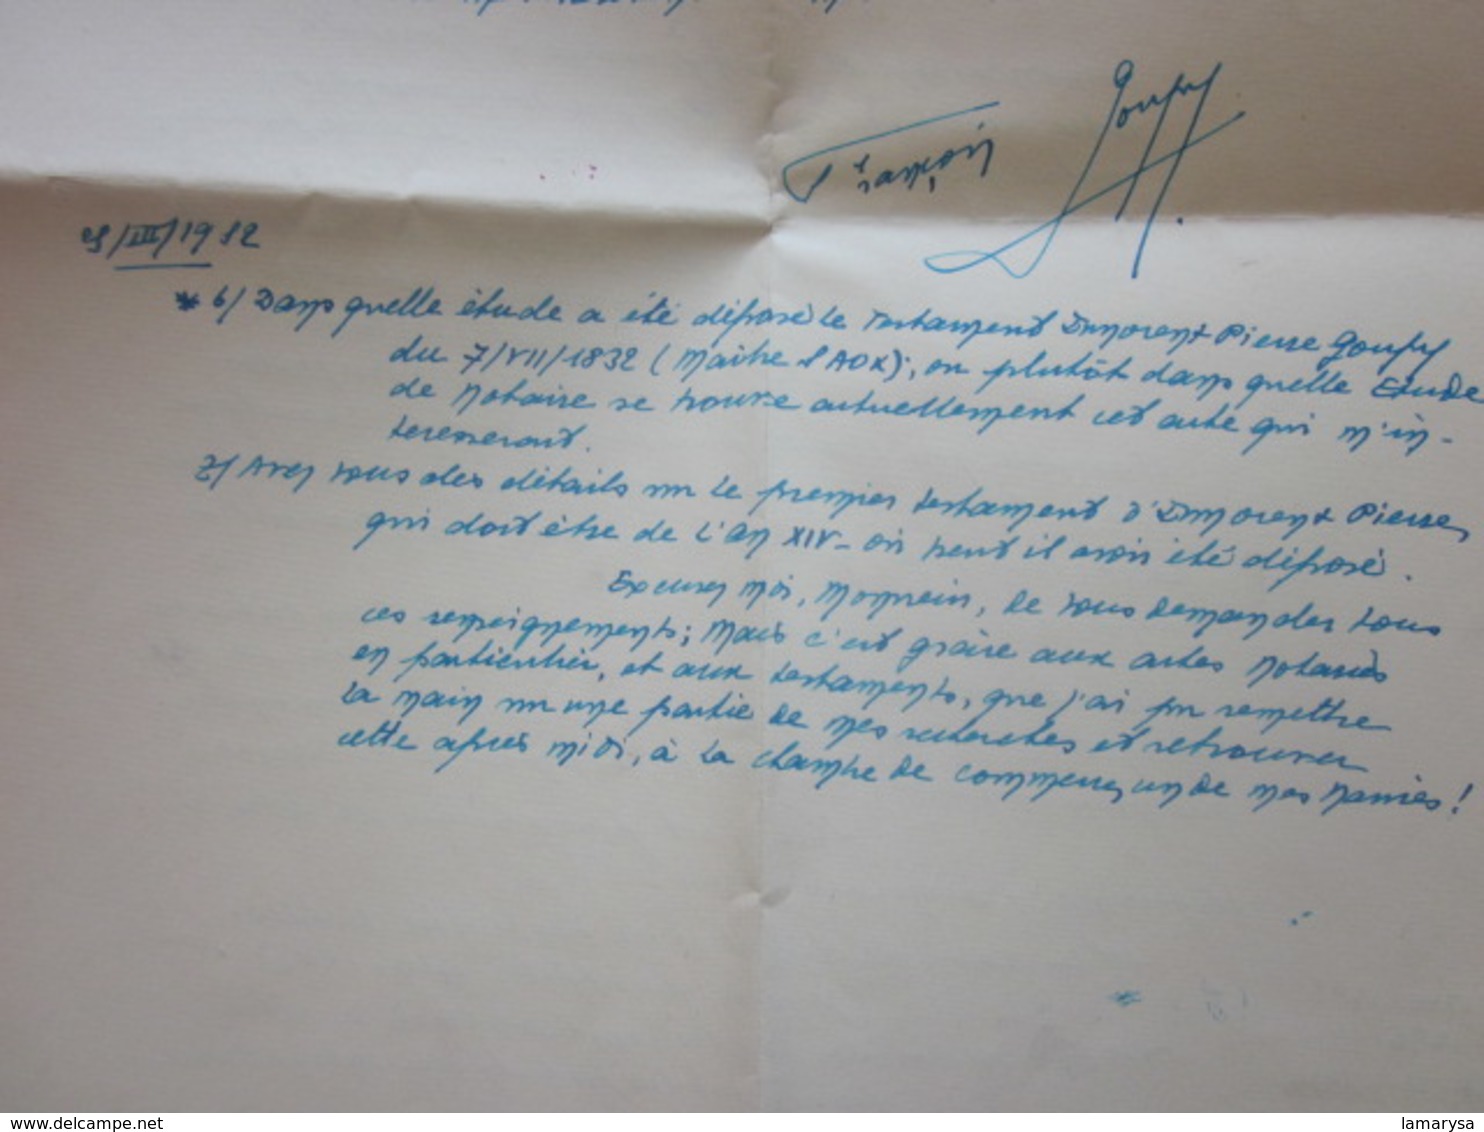 François Gouffy
/III/1912
* 6/ Dans quelle étude a été déposé le Testament Innocent Pierre Gouffy
du 7/VII/1832 (Maître ; ou plutôt dans quelle Etude
de Notaire se trouve actuellement cet acte qui m'in-
teresserait.
7/ Avez vous des détails sur le premier testament d'Innocent Pierre,
qui doit être de l'an XIV - où peut il avoir été déposé.
Excusez moi, Monsieur, de vous demander tous
ces renseignements; Mais c'est grâce aux actes notariés
en particulier, et aux testaments, que j'ai pu remettre
la main sur une partie de mes recherches et retrouver
cette après midi, à la chambre de commerce, un de mes
delcampe.net
lamarysa